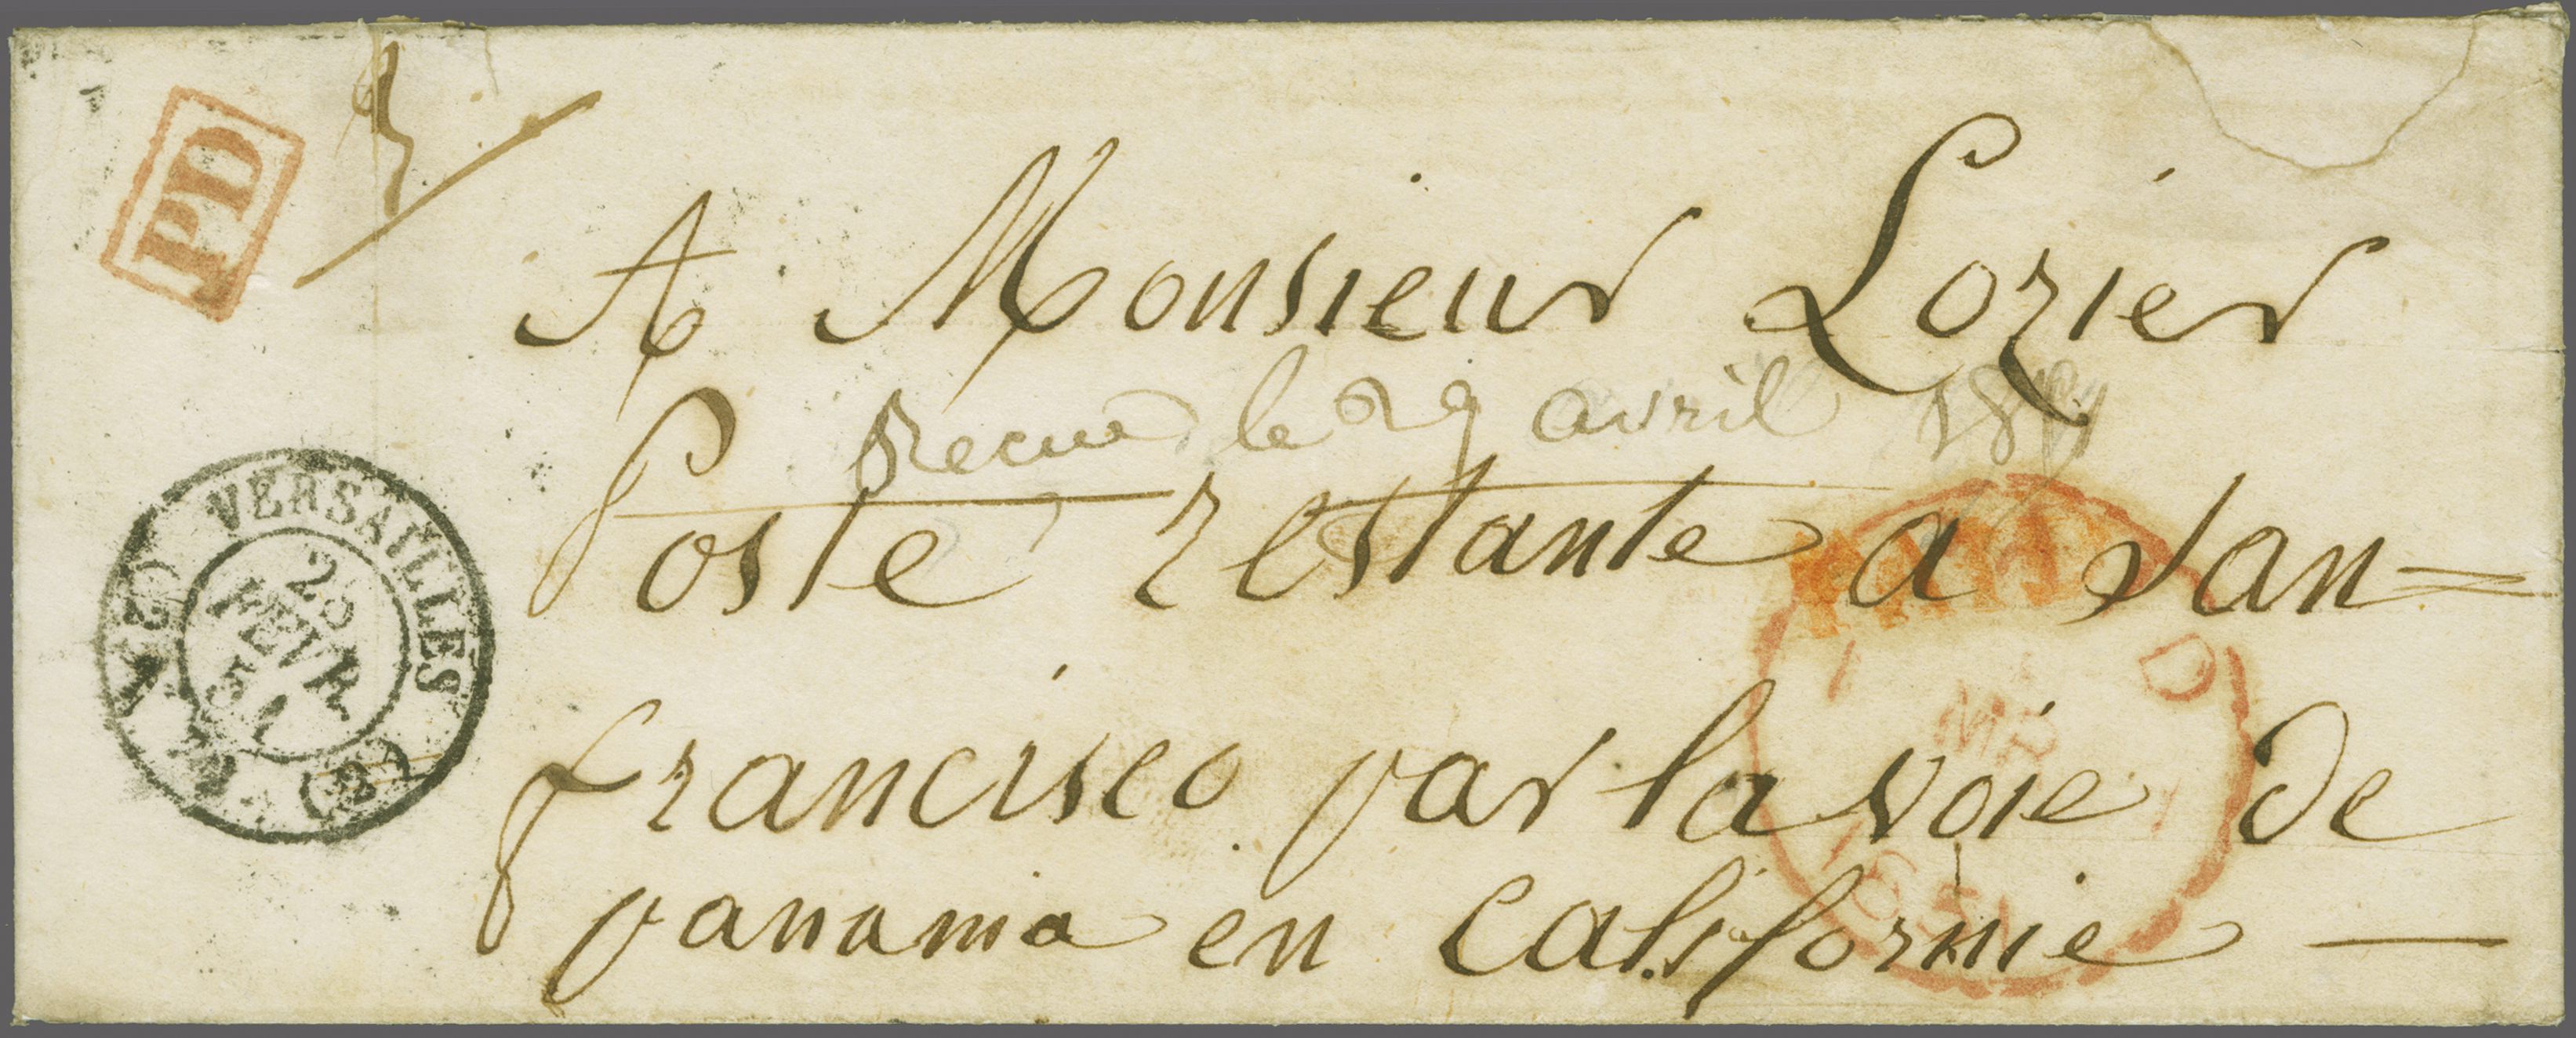 PD
A Monsieur Lozier
recue le 29 avril 18
Poste restante a San=
francisco par la voie de
panama en Californie —
VERSAILLES
FEVR.
51
PAID